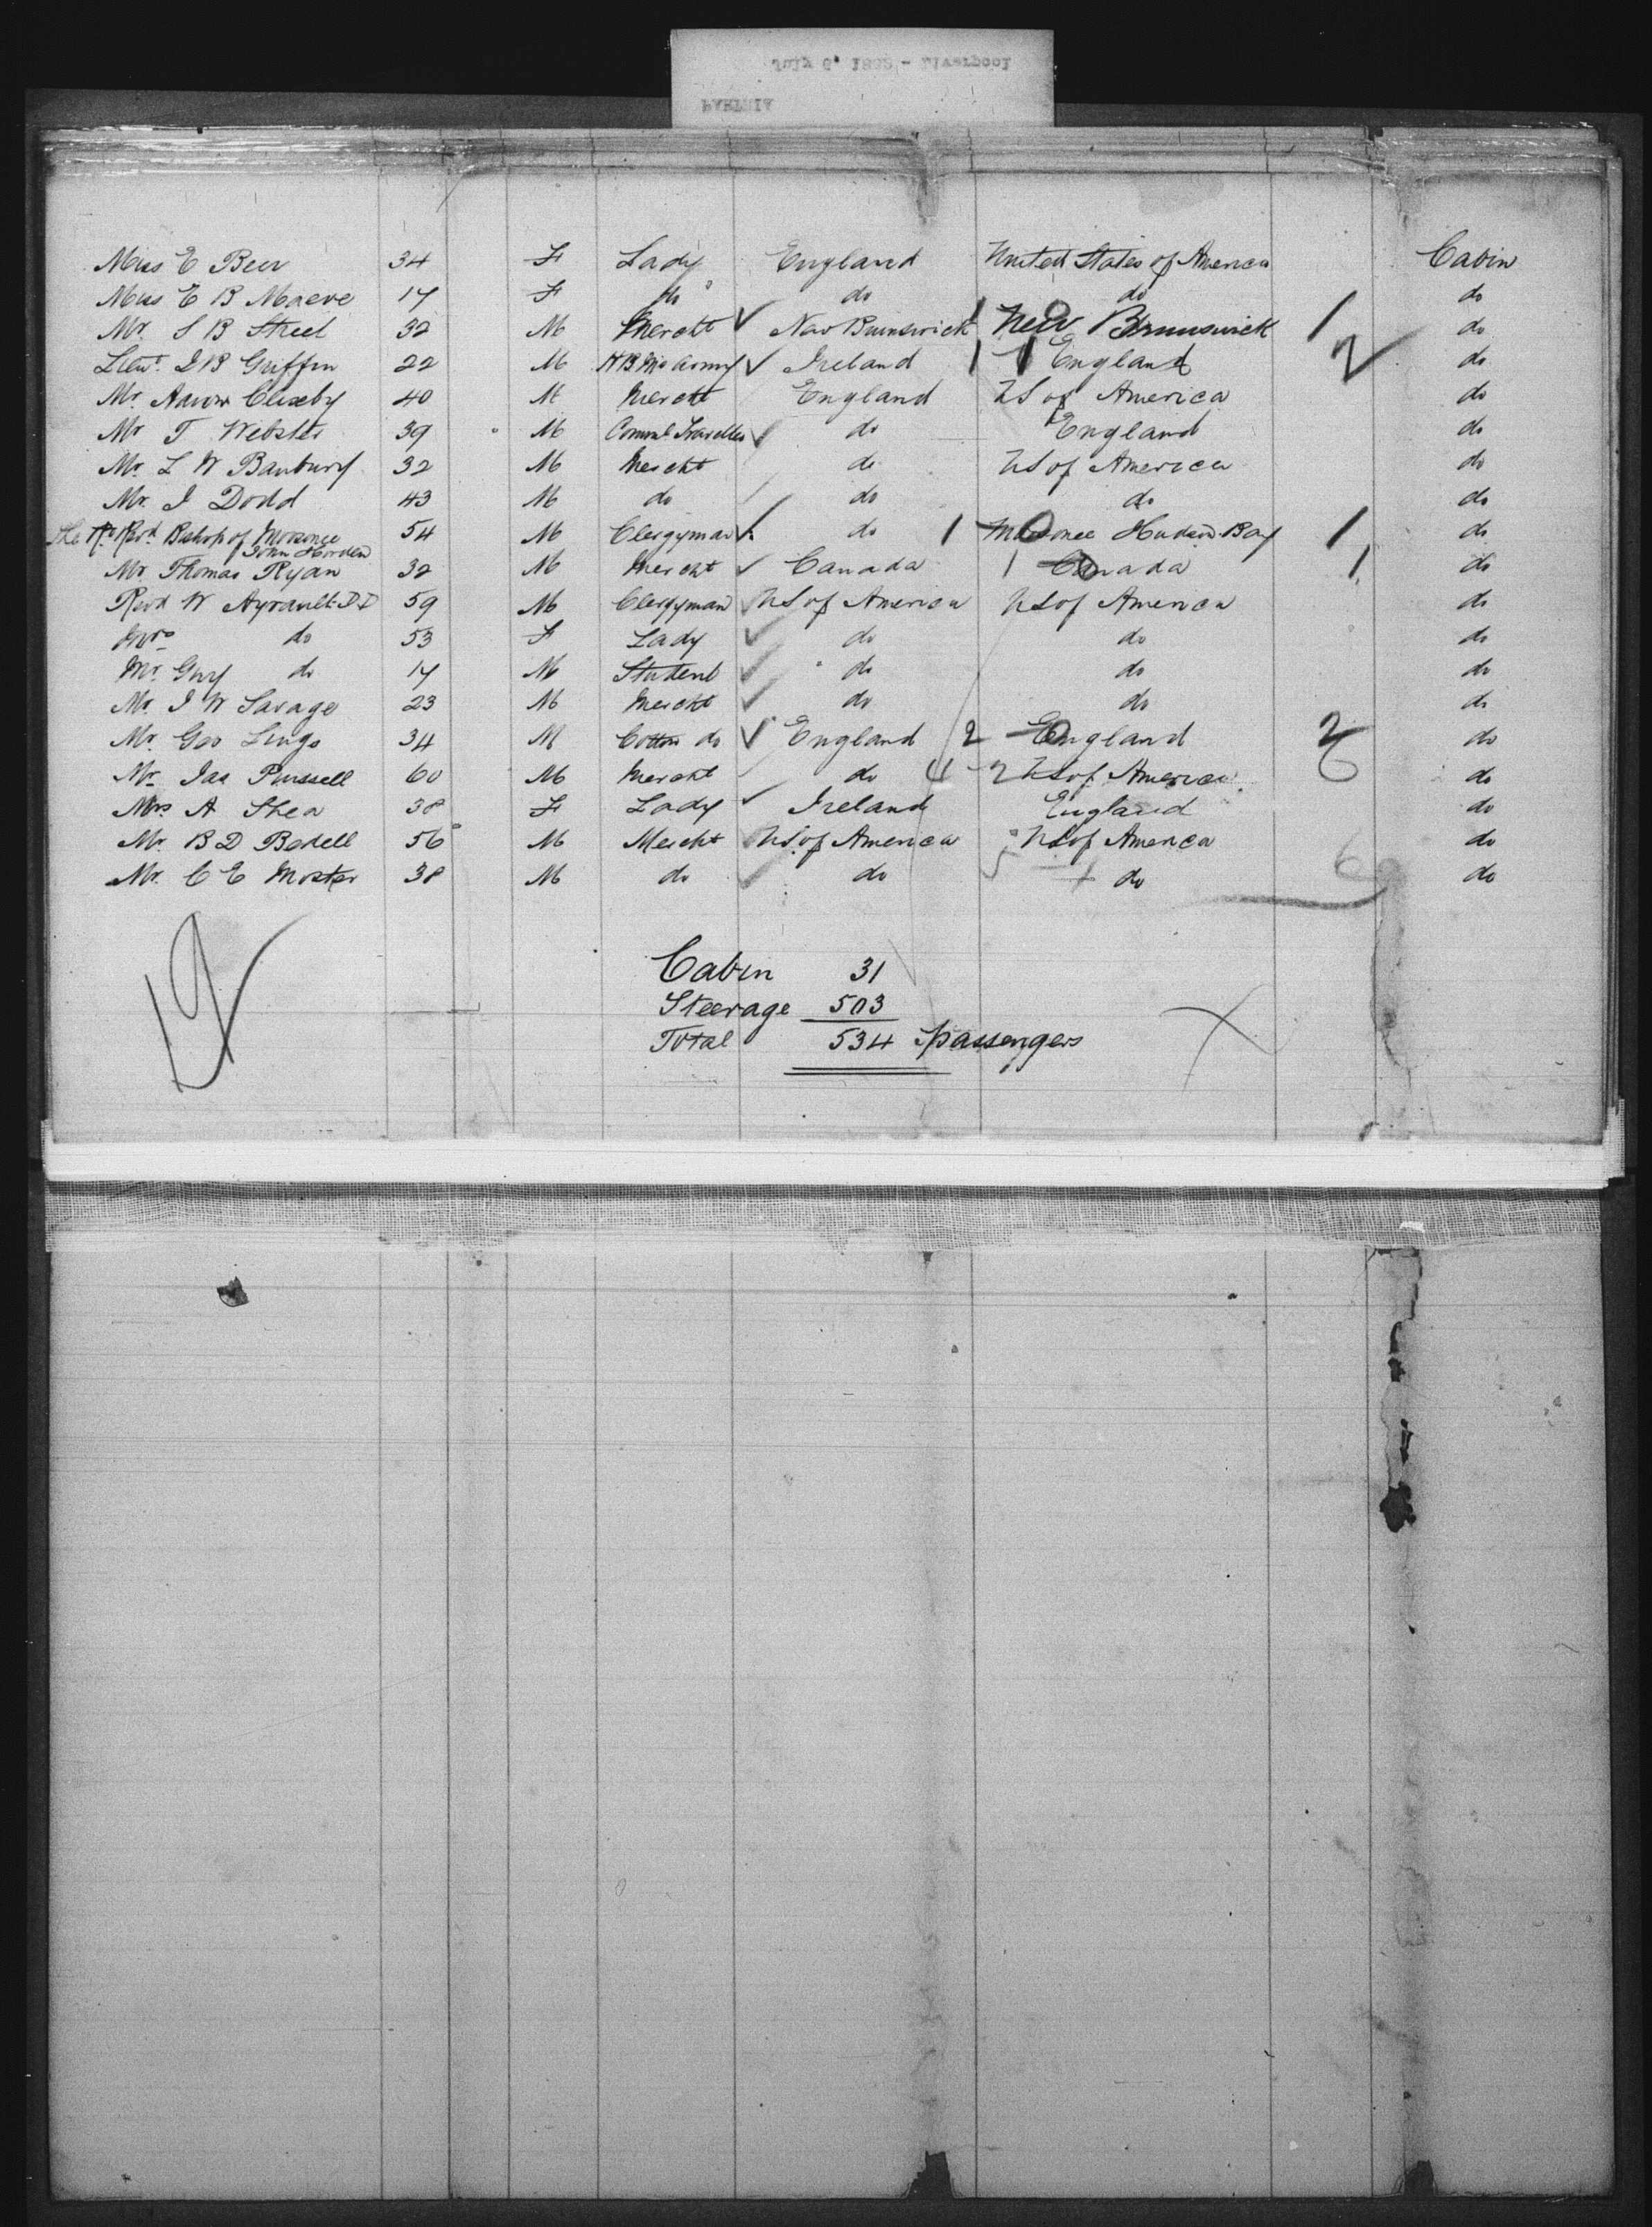 Miss E Beer 34 F Lady England United States of America Cabin
Miss E B Maeve 17 F do do do do
Mr. S B Street 32 M Mercht ✓ New Brunswick 1 New Brunswick 1 do
Lieut. I B Griffin 22 M H B Ms Army ✓ Ireland 1 1 England 2 do
Mr. Aaron Clixeby 40 M Mercht England US of America do
Mr T Webster 39 M Comml Traveller ✓ do England do
Mr. L W Banbury 32 M Mercht do US of America do
Mr. I Dodd 43 M do do do do
The Rt. Revd. Bishop of Moosonee 54 M Clergyman ✓ do 1 Moosonee Hudson Bay 1 do
John Horden
Mr Thomas Ryan 32 M Mercht ✓ Canada 1 Canada 1 do
Revd W Ayrault D D 59 M Clergyman ✓ US of America US of America do
Mrs do 53 F Lady ✓ do do do
Mr. Guy do 17 M Student ✓ do do do
Mr. I W Savage 23 M Mercht ✓ do do do
Mr. Geo Lings 34 M Cotton do ✓ England 2 England 2 do
Mr. Jas Purssell 60 M Mercht do 4 2 US of America do
Mrs A Shea 38 F Lady ✓ Ireland England do
Mr. B D Bedell 56 M Mercht ✓ US of America US of America do
Mr. C E 38 M do ✓ do 5 do 6 do
19
Cabin 31
Steerage 503
Total 534 Passengers